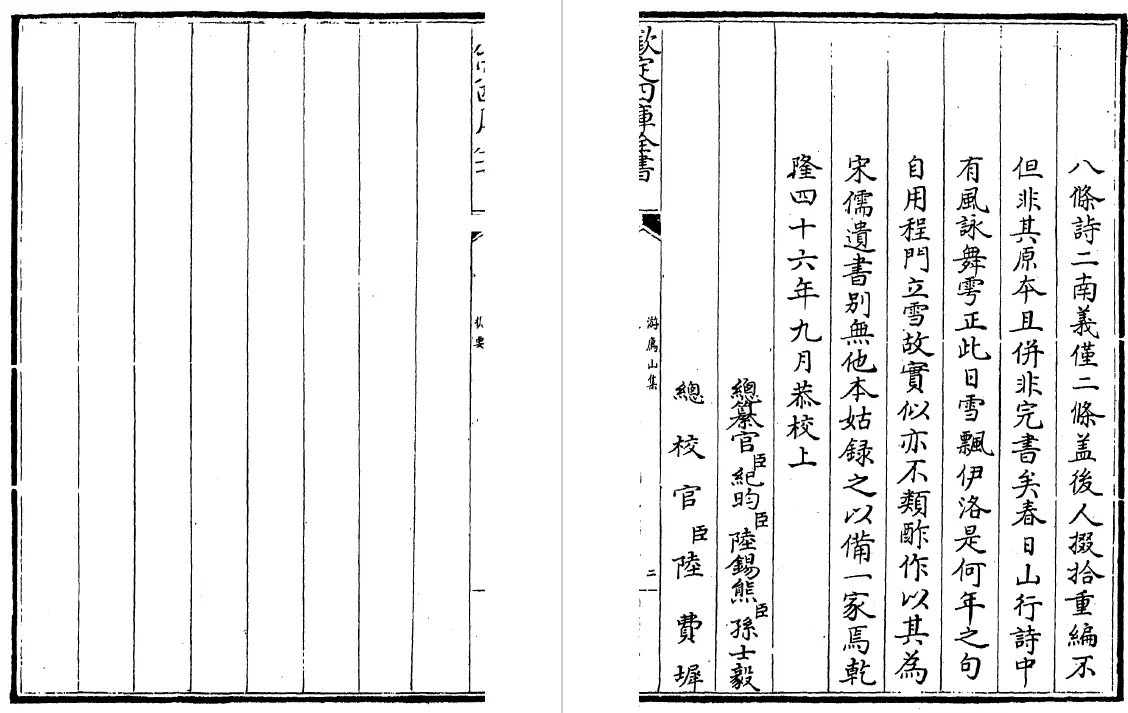 八條詩二南義僅二條盖後人掇拾重編不
但非其原本且併非完書矣春日山行詩中
有風詠舞雩正此日雪飄伊洛是何年之句
自用程門立雪故實似亦不類酢作以其為
宋儒遺書别無他本姑録之以備一家焉乾
隆四十六年九月恭校上
總纂官臣紀昀臣陸錫熊臣孫士毅
總校官臣陸費墀
欽定四庫全書
游廌山集
二